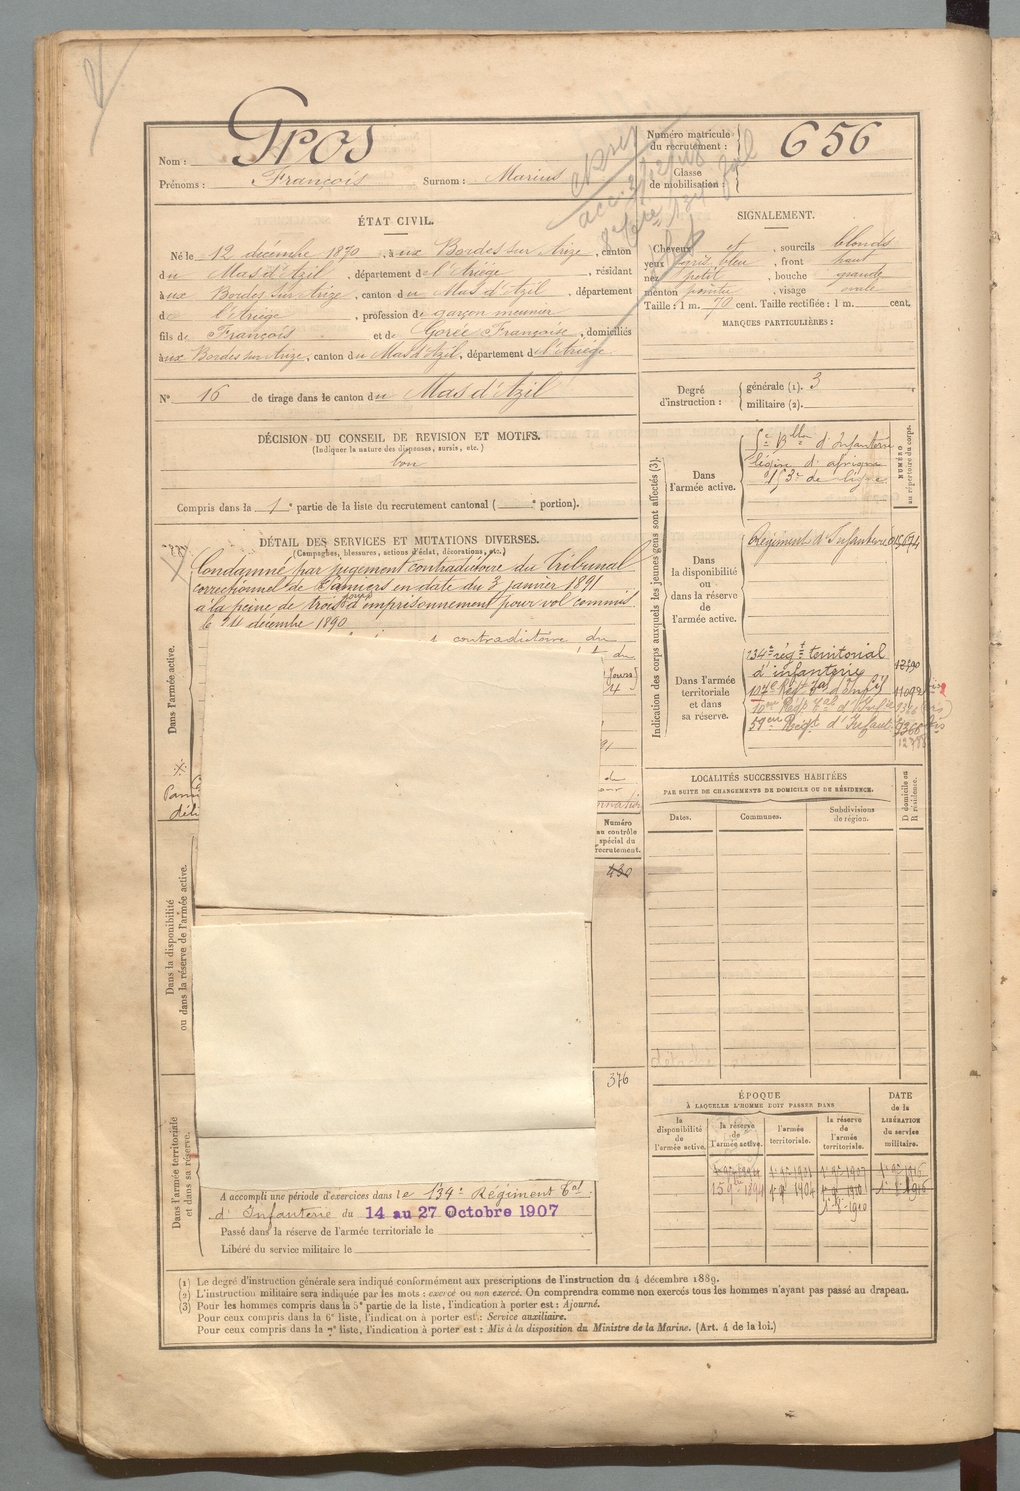 Nom : Gros
Prénoms : François Surnom : Marius
Numéro matricule du recrutement : 656
Classe de mobilisation :
ÉTAT CIVIL.
Né le 12 décembre 1870, à ux Bordes sur Arize, canton
du Mas d'Azil, département de l'Ariège, résidant
à ux Bordes sur Arize, canton du Mas d'Azil, département
de l'Ariège, profession de garçon meunier
fils de François et de Gorée Françoise, domiciliés
à ux Bordes sur Arize, canton du Mas d'Azil, département de l'Ariège
N° 16 de tirage dans le canton du Mas d'Azil
DÉCISION DU CONSEIL DE REVISION ET MOTIFS.
(Indiquer la nature des dispenses, sursis, etc.)
bon
Compris dans la 1e partie de la liste du recrutement cantonal ( e portion).
DÉTAIL DES SERVICES ET MUTATIONS DIVERSES.
(Campagnes, blessures, actions d'éclat, décorations, etc.)
Condamné par jugement contradictoire du Tribunal
correctionnel de Pamiers en date du 3 janvier 1891
à la peine de trois jours d'emprisonnement pour vol commis
le 24 décembre 1890
contradictoire du
Dans l'armée active.
Dans la disponibilité ou dans la réserve de l'armée active.
Dans l'armée territoriale et dans sa réserve.
Numéro au contrôle spécial du recrutement.
430
376
A accompli une période d'exercices dans le 134e Régiment tal
d'Infanterie du 14 au 27 Octobre 1907
Passé dans la réserve de l'armée territoriale le
Libéré du service militaire le
SIGNALEMENT.
Cheveux et, sourcils blonds
yeux gris bleu, front haut
nez petit, bouche grande
menton pointu, visage ovale
Taille : 1 m. 70 cent. Taille rectifiée : 1 m. cent.
MARQUES PARTICULIÈRES :
Degré d'instruction : générale (1). 3
militaire (2).
Indication des corps auxquels les jeunes gens sont affectés (3).
NUMÉRO au répertoire du corps.
Dans l'armée active.
5e Bllon d'Infanterie
légère d'afrique
153e de ligne
Dans la disponibilité ou dans la réserve de l'armée active.
Régiment d'Infanterie
Dans l'armée territoriale et dans sa réserve.
134e régt territorial
d'infanterie
107e Régt tal d'Inf
59em Régt d'Infant
LOCALITÉS SUCCESSIVES HABITÉES
PAR SUITE DE CHANGEMENTS DE DOMICILE OU DE RÉSIDENCE.
Dates. Communes. Subdivisions de région. D domicile ou R résidence.
ÉPOQUE
À LAQUELLE L'HOMME DOIT PASSER DANS
DATE de la LIBÉRATION du service militaire.
la disponibilité de l'armée active. la réserve de l'armée active. l'armée territoriale. la réserve de l'armée territoriale.
(1) Le degré d'instruction générale sera indiqué conformément aux prescriptions de l'instruction du 4 décembre 1889.
(2) L'instruction militaire sera indiquée par les mots : exercé ou non exercé. On comprendra comme non exercés tous les hommes n'ayant pas passé au drapeau.
(3) Pour les hommes compris dans la 5e partie de la liste, l'indication à porter est : Ajourné.
Pour ceux compris dans la 6e liste, l'indication à porter est : Service auxiliaire.
Pour ceux compris dans la 7e liste, l'indication à porter est : Mis à la disposition du Ministre de la Marine. (Art. 4 de la loi.)